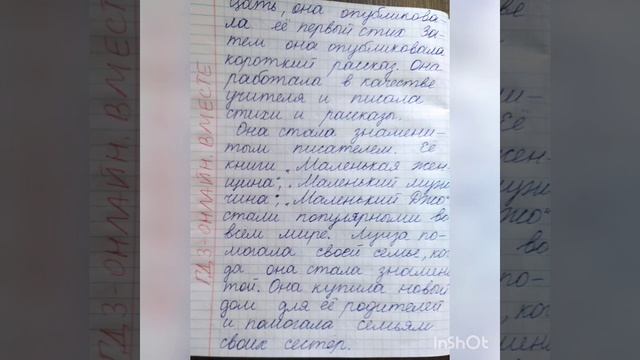 цать, она опубликова-
ла её первый стих. За-
тем она опубликовала
короткий рассказ. Она
работала в качестве
учителя и писала
стихи и рассказы.
Она стала знамени-
тым писателем. Её
книги "Маленькая жен-
щина", "Маленький муж
чина", "Маленький Джо"
стали популярными во
всем мире. Луиза по-
могала своей семье, ког
да она стала знамен
той. Она купила новый
дом для её родителей
и помогала семьям
своих сестер.
ГДЗ-ОНЛАЙН. ВМЕСТЕ
InShOt